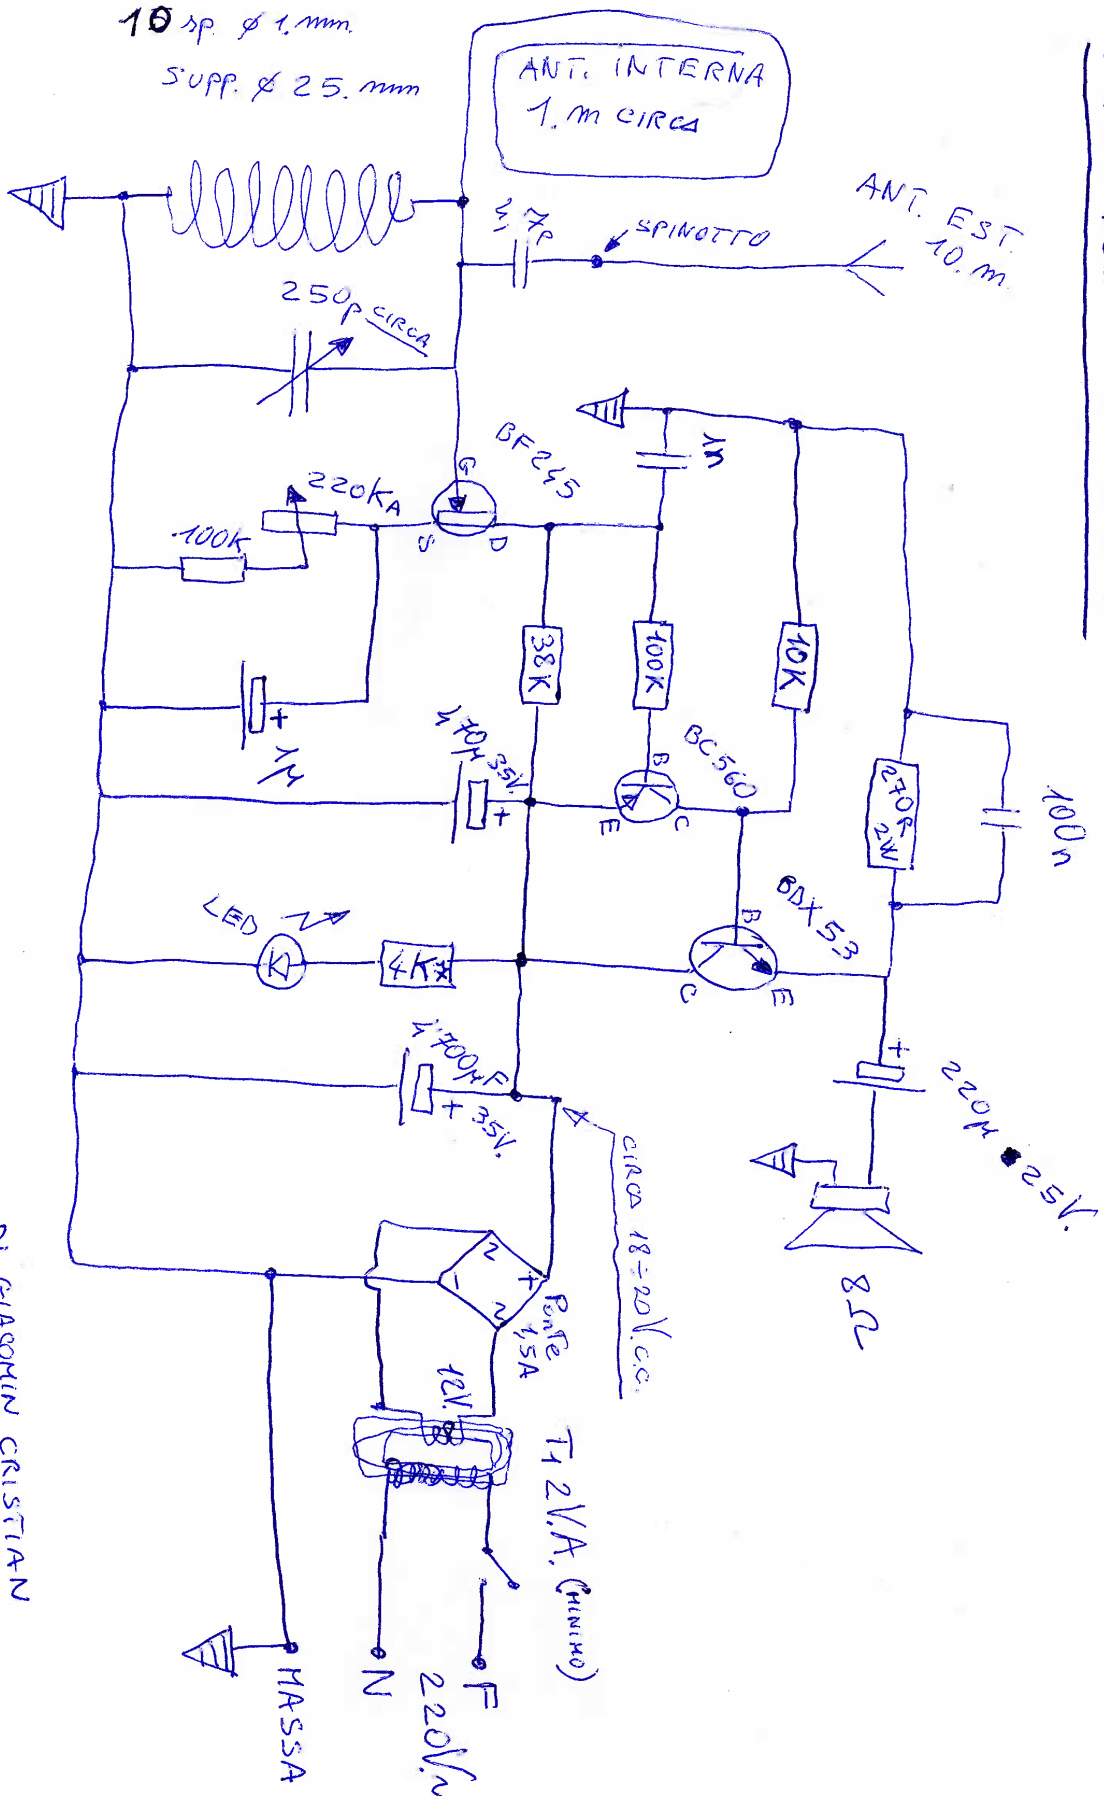 10 sp. ø 1. mm.
SUPP. ø 25. mm
ANT. INTERNA
1. m CIRCA
ANT. EST.
10. m
4,7p
SPINOTTO
250p CIRCA
BF245
G
S
D
1n
220KA
100K
38K
100K
10K
1µ
+
470µ 35V.
+
BC560
B
E
C
270R
2W
100n
BDX53
B
C
E
LED
4K7
4700µF
+ 35V.
+
220µ 25V.
8Ω
CIRCA 18÷20V.c.c.
Ponte
1,5A
~
+
-
~
12V.
T1 2V.A. (MINIMO)
F
N
220V~
MASSA
DI GIACOMIN CRISTIAN